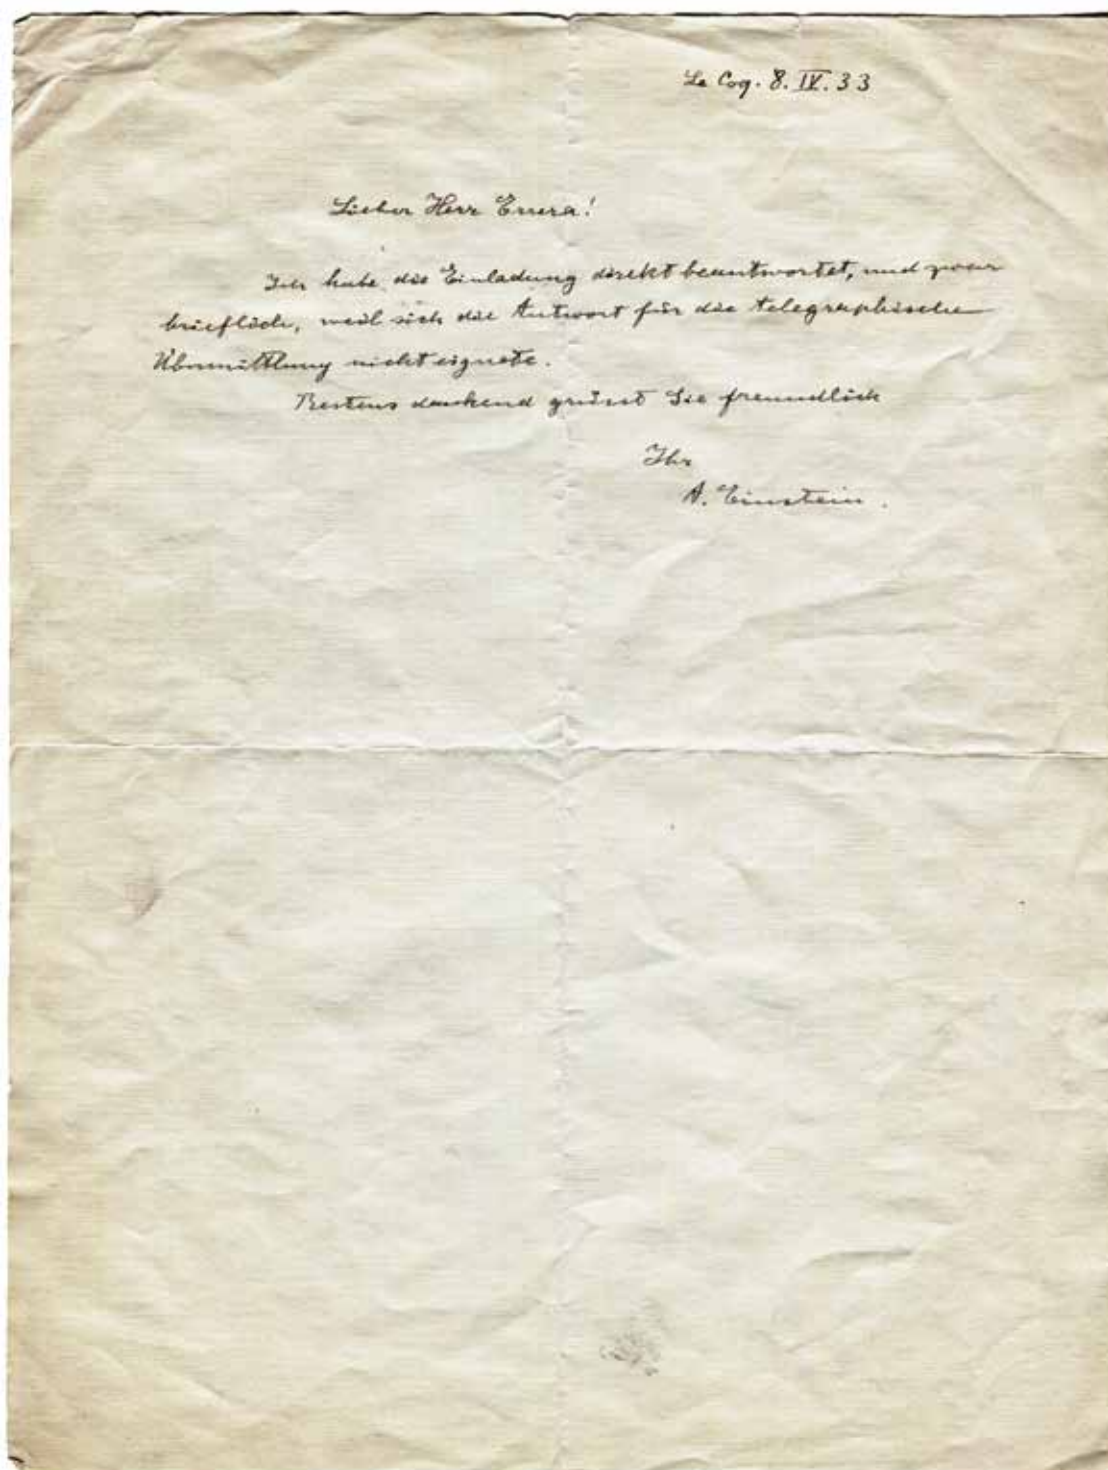 Le Coq. 8. IV. 33
Lieber Herr Errera!
Ich habe die Einladung direkt beantwortet, und zwar
brieflich, weil sich die Antwort für die telegraphische
Übermittlung nicht eignete.
Bestens dankend grüsst Sie freundlich
Ihr
A. Einstein.